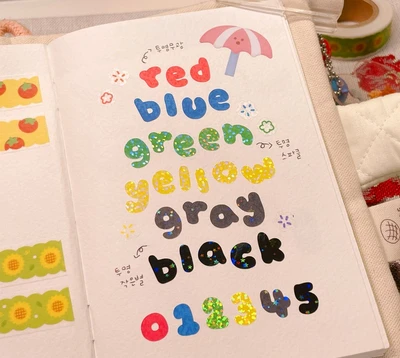 투명유광
red
blue
green
투명
스파클
yellow
gray
black
투명
작은별
012345